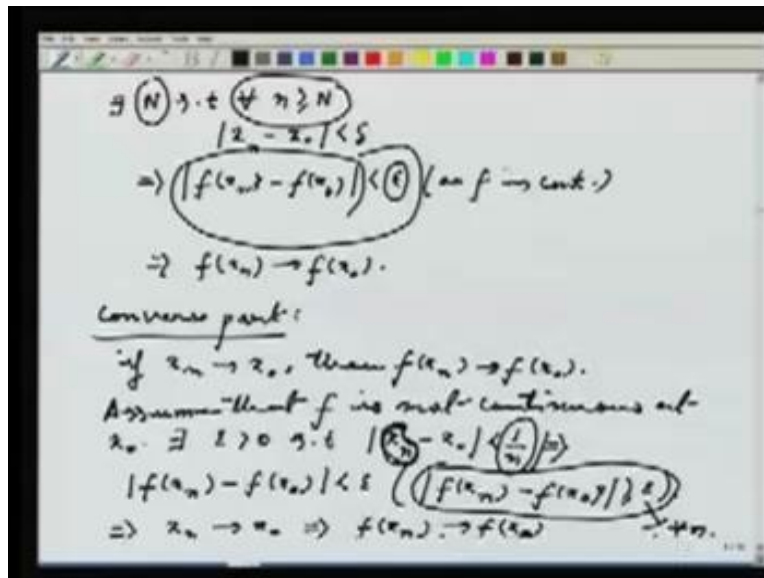 ∃ N s.t ∀ n ≥ N
|x_n - x_0| < δ
⇒ |f(x_n) - f(x_0)| < ε (as f is cont.)
⇒ f(x_n) → f(x_0).
Converse part:
if x_n → x_0, then f(x_n) → f(x_0).
Assume that f is not continuous at
x_0. ∃ ε > 0 s.t |x_n - x_0| < 1/n ⇒
|f(x_n) - f(x_0)| < ε (|f(x_n) - f(x_0)| ≥ ε)
⇒ x_n → x_0 ⇒ f(x_n) → f(x_0) ∀ n.